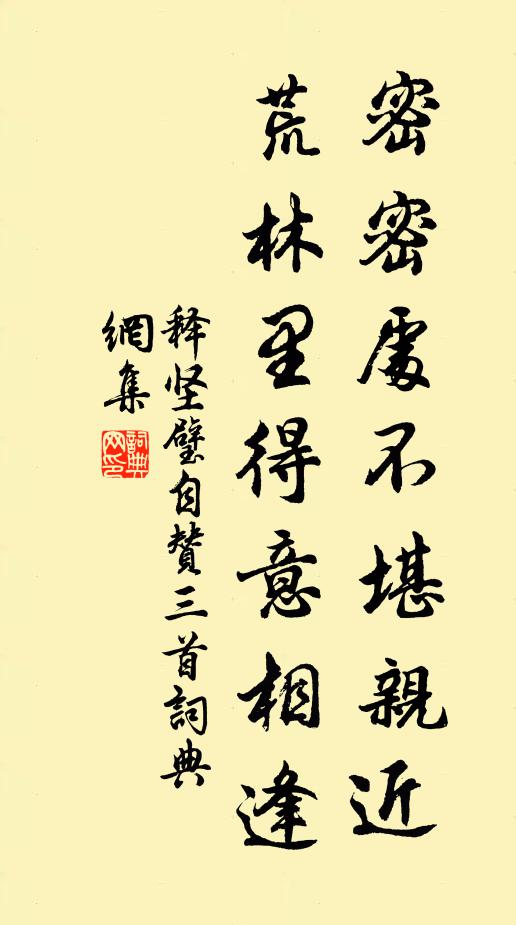 密密處不堪親近
荒林里得意相逢
释坚璧自赞三首詞典
網集
詞典
网印